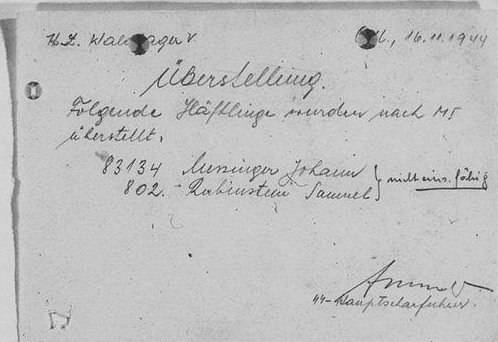 K.Z. Waldlager V. O.U., 16.11.1944
Überstellung.
Folgende Häftlinge wurden nach M1
überstellt.
83134 Messinger Johann
802. Rubinstein Samuel } nicht eins. fähig
Hauptscharführer